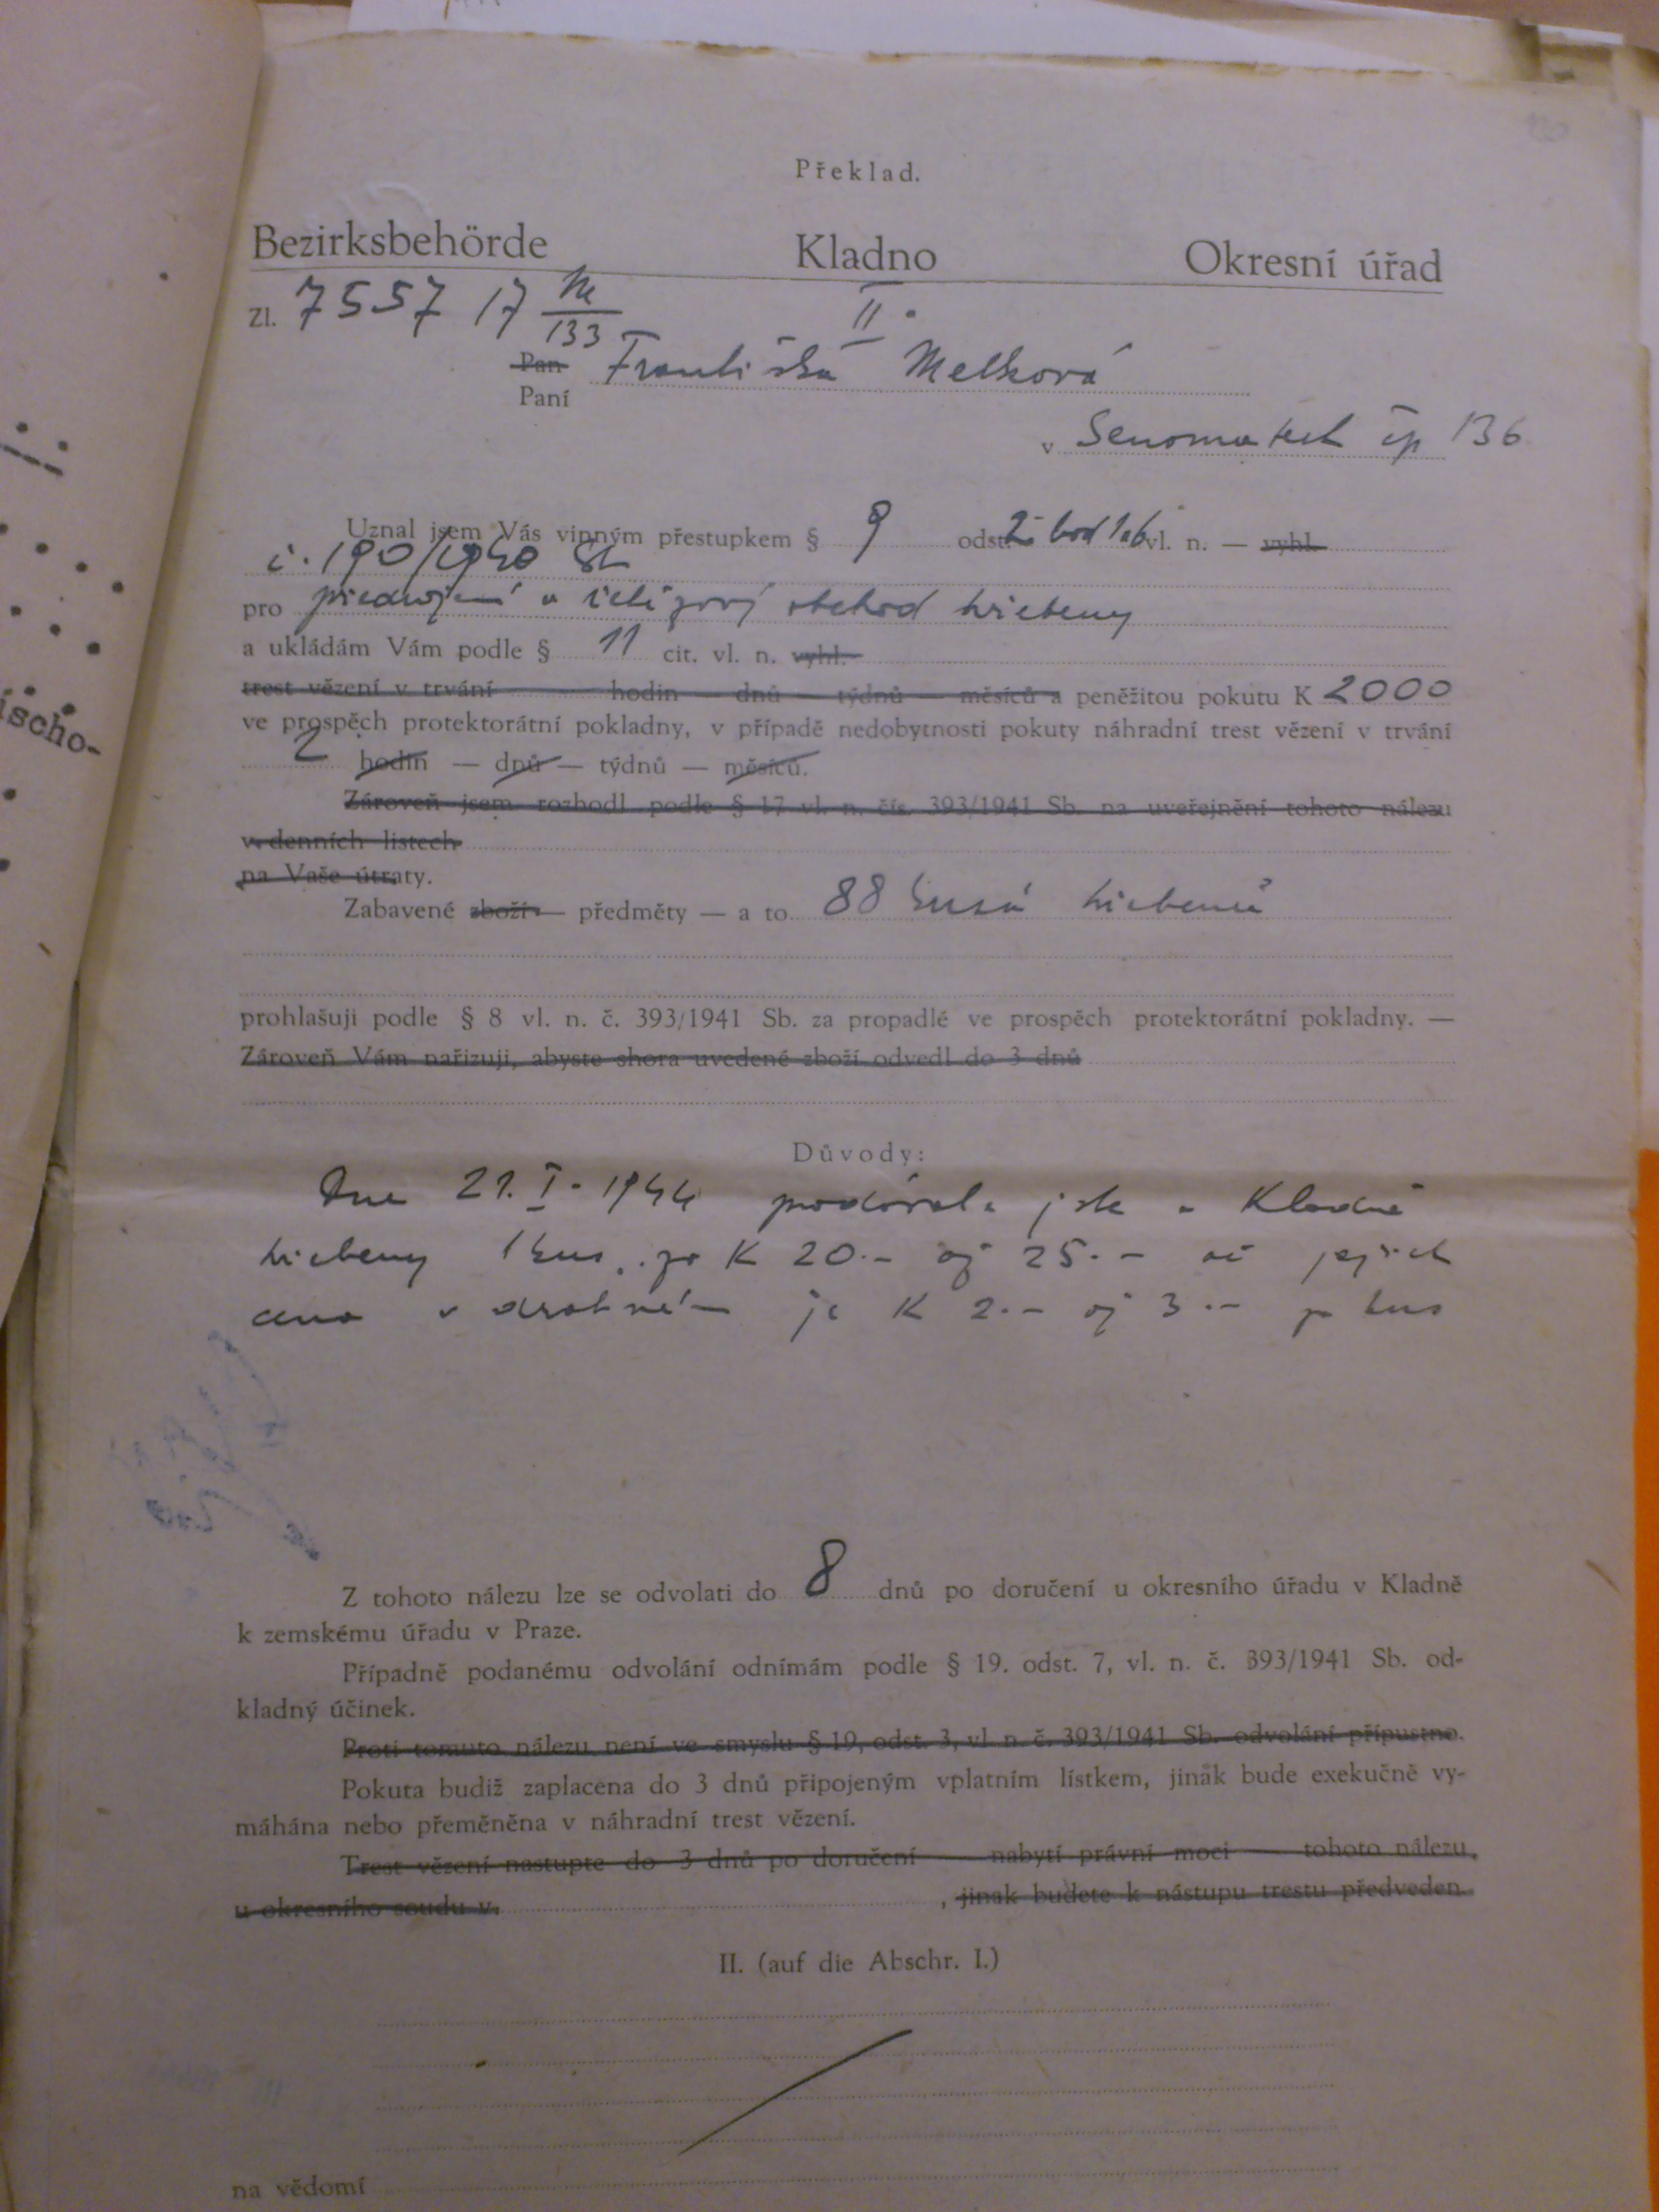 Překlad.
Bezirksbehörde Kladno Okresní úřad
Zl. 7557 17 M/133 II.
Pan Františka Melková
Paní
v Senomatech čp 136
Uznal jsem Vás vinným přestupkem § 9 odst. 2 bod 1 a 6 vl. n. — vyhl.
č. 190/1940 Sb
pro předražení a řetězový obchod hřebeny
a ukládám Vám podle § 11 cit. vl. n. vyhl.
trest vězení v trvání hodin — dnů — týdnů — měsíců a peněžitou pokutu K 2000
ve prospěch protektorátní pokladny, v případě nedobytnosti pokuty náhradní trest vězení v trvání
2 hodin — dnů — týdnů — měsíců.
Zároveň jsem rozhodl podle § 17 vl. n. čís. 393/1941 Sb. na uveřejnění tohoto nálezu
v denních listech
na Vaše útraty.
Zabavené zboží — předměty — a to 88 kusů hřebenů
prohlašuji podle § 8 vl. n. č. 393/1941 Sb. za propadlé ve prospěch protektorátní pokladny. —
Zároveň Vám nařizuji, abyste shora uvedené zboží odvedl do 3 dnů
Důvody:
Dne 21. I. 1944 prodávala jste v Kladně
hřebeny 1 kus za K 20.- až 25.- ač jejich
cena v drobném je K 2.- až 3.- za kus
Z tohoto nálezu lze se odvolati do 8 dnů po doručení u okresního úřadu v Kladně
k zemskému úřadu v Praze.
Případně podanému odvolání odnímám podle § 19. odst. 7, vl. n. č. 393/1941 Sb. od-
kladný účinek.
Proti tomuto nálezu není ve smyslu § 19, odst. 3, vl. n. č. 393/1941 Sb. odvolání přípustno.
Pokuta budiž zaplacena do 3 dnů připojeným vplatním lístkem, jinak bude exekučně vy-
máhána nebo přeměněna v náhradní trest vězení.
Trest vězení nastupte do 3 dnů po doručení — nabytí právní moci — tohoto nálezu,
u okresního soudu v , jinak budete k nástupu trestu předveden.
II. (auf die Abschr. I.)
na vědomí
ischo-